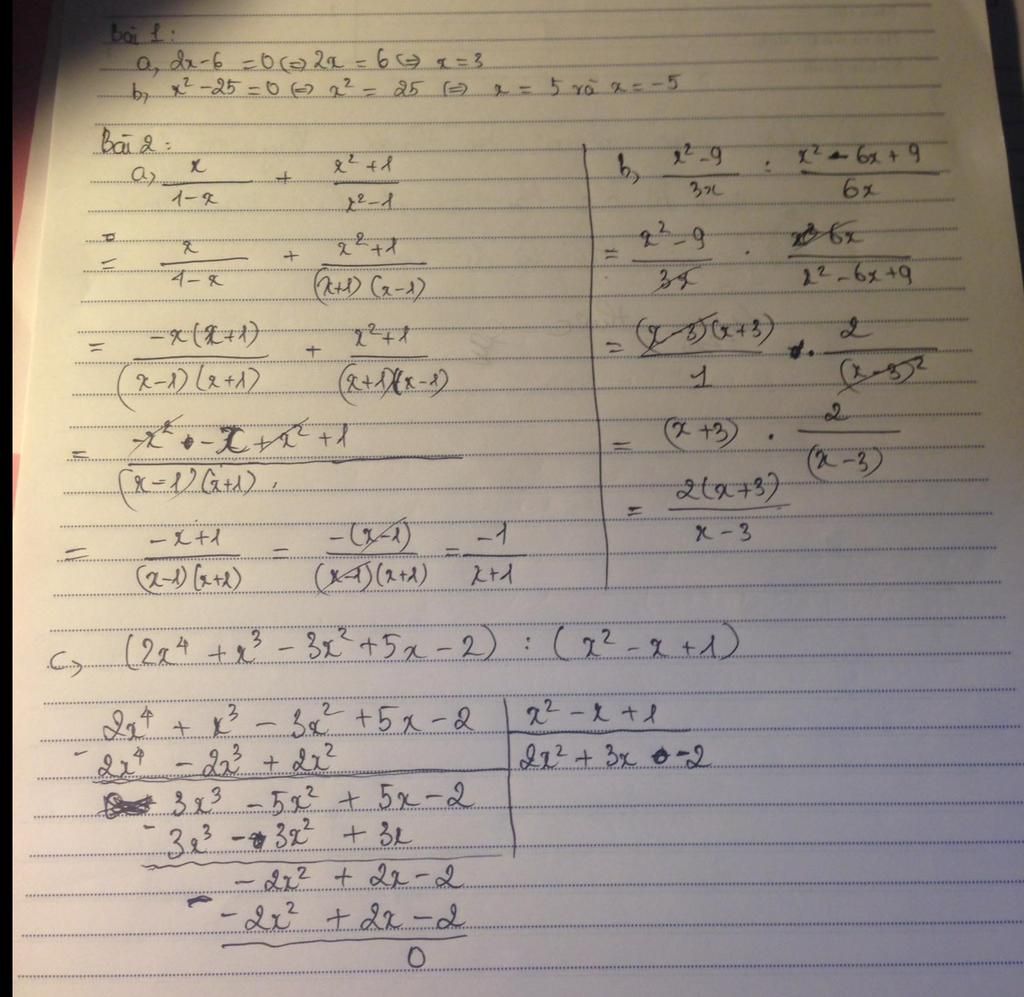 Bài 1:
a, 2x-6 = 0 <=> 2x = 6 <=> x = 3
b, x² - 25 = 0 <=> x² = 25 <=> x = 5 và x = -5
Bài 2:
a, x/(1-x) + (x²+1)/(x²-1)
= x/(1-x) + (x²+1)/((x+1)(x-1))
= -x(x+1)/((x-1)(x+1)) + (x²+1)/((x+1)(x-1))
= (-x² - x + x² + 1)/((x-1)(x+1))
= (-x+1)/((x-1)(x+1)) = -(x-1)/((x-1)(x+1)) = -1/(x+1)
b, (x²-9)/3x : (x² - 6x + 9)/6x
= (x²-9)/3x . 6x/(x²-6x+9)
= (x-3)(x+3)/1 . 2/(x-3)²
= (x+3) . 2/(x-3)
= 2(x+3)/(x-3)
c, (2x⁴ + x³ - 3x² + 5x - 2) : (x² - x + 1)
2x⁴ + x³ - 3x² + 5x - 2 | x² - x + 1
- 2x⁴ - 2x³ + 2x² | 2x² + 3x - 2
3x³ - 5x² + 5x - 2
- 3x³ - 3x² + 3x
- 2x² + 2x - 2
- - 2x² + 2x - 2
0